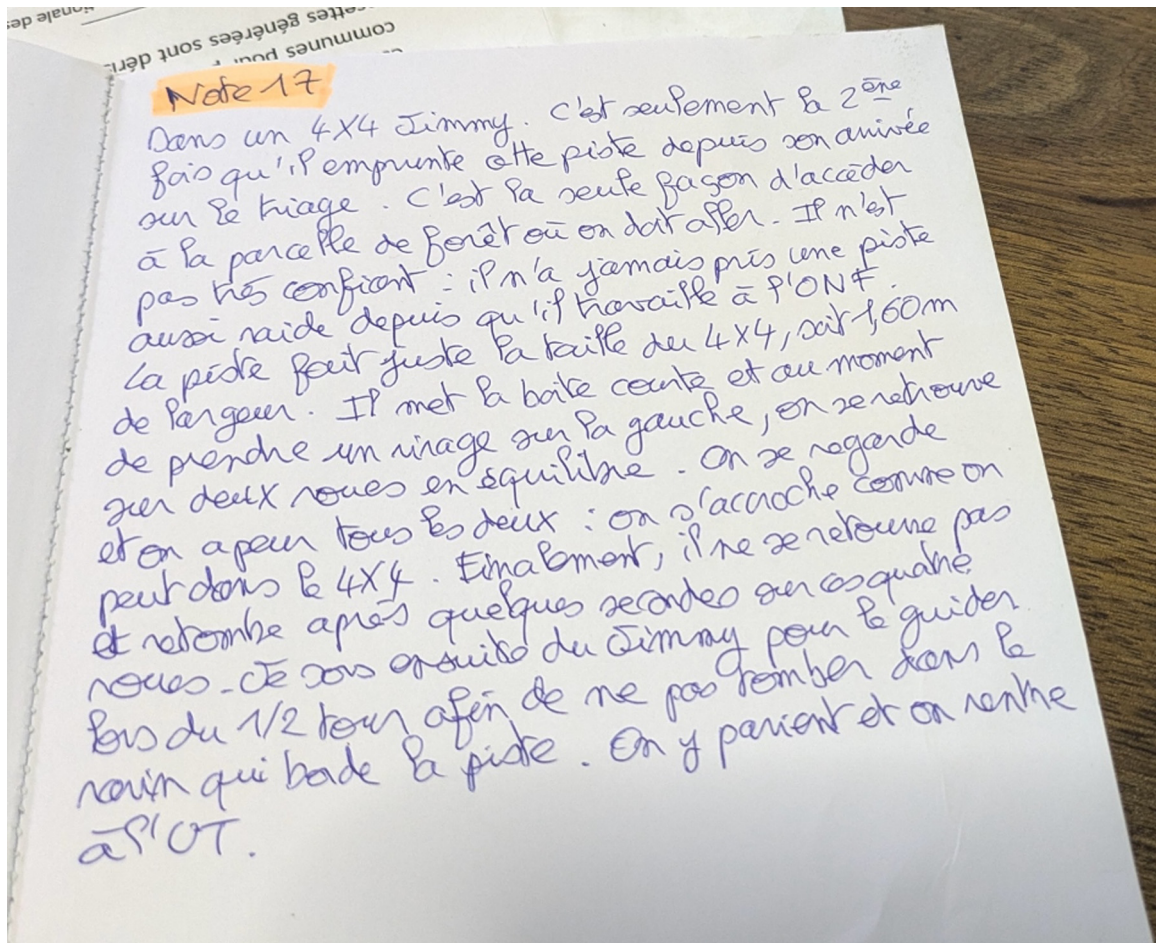 ettes générées sont déri
communes pour
Note 17
Dans un 4X4 Jimmy. C'est seulement la 2ème
fois qu'il emprunte cette piste depuis son arrivée
sur le triage. C'est la seule façon d'accéder
à la parcelle de forêt où on doit aller. Il n'est
pas très confiant : il n'a jamais pris une piste
aussi raide depuis qu'il travaille à l'ONF.
La piste fait juste la taille du 4X4, soit 1,60m
de largeur. Il met la boîte courte et au moment
de prendre un virage sur la gauche, on se retrouve
sur deux roues en équilibre. On se regarde
et on a peur tous les deux : on s'accroche comme on
peut dans le 4X4. Finalement, il ne se retourne pas
et retombe après quelques secondes sur ces quatre
roues. Je sors ensuite du Jimmy pour le guider
lors du 1/2 tour afin de ne pas tomber dans le
ravin qui borde la piste. On y parvient et on rentre
à l'UT.